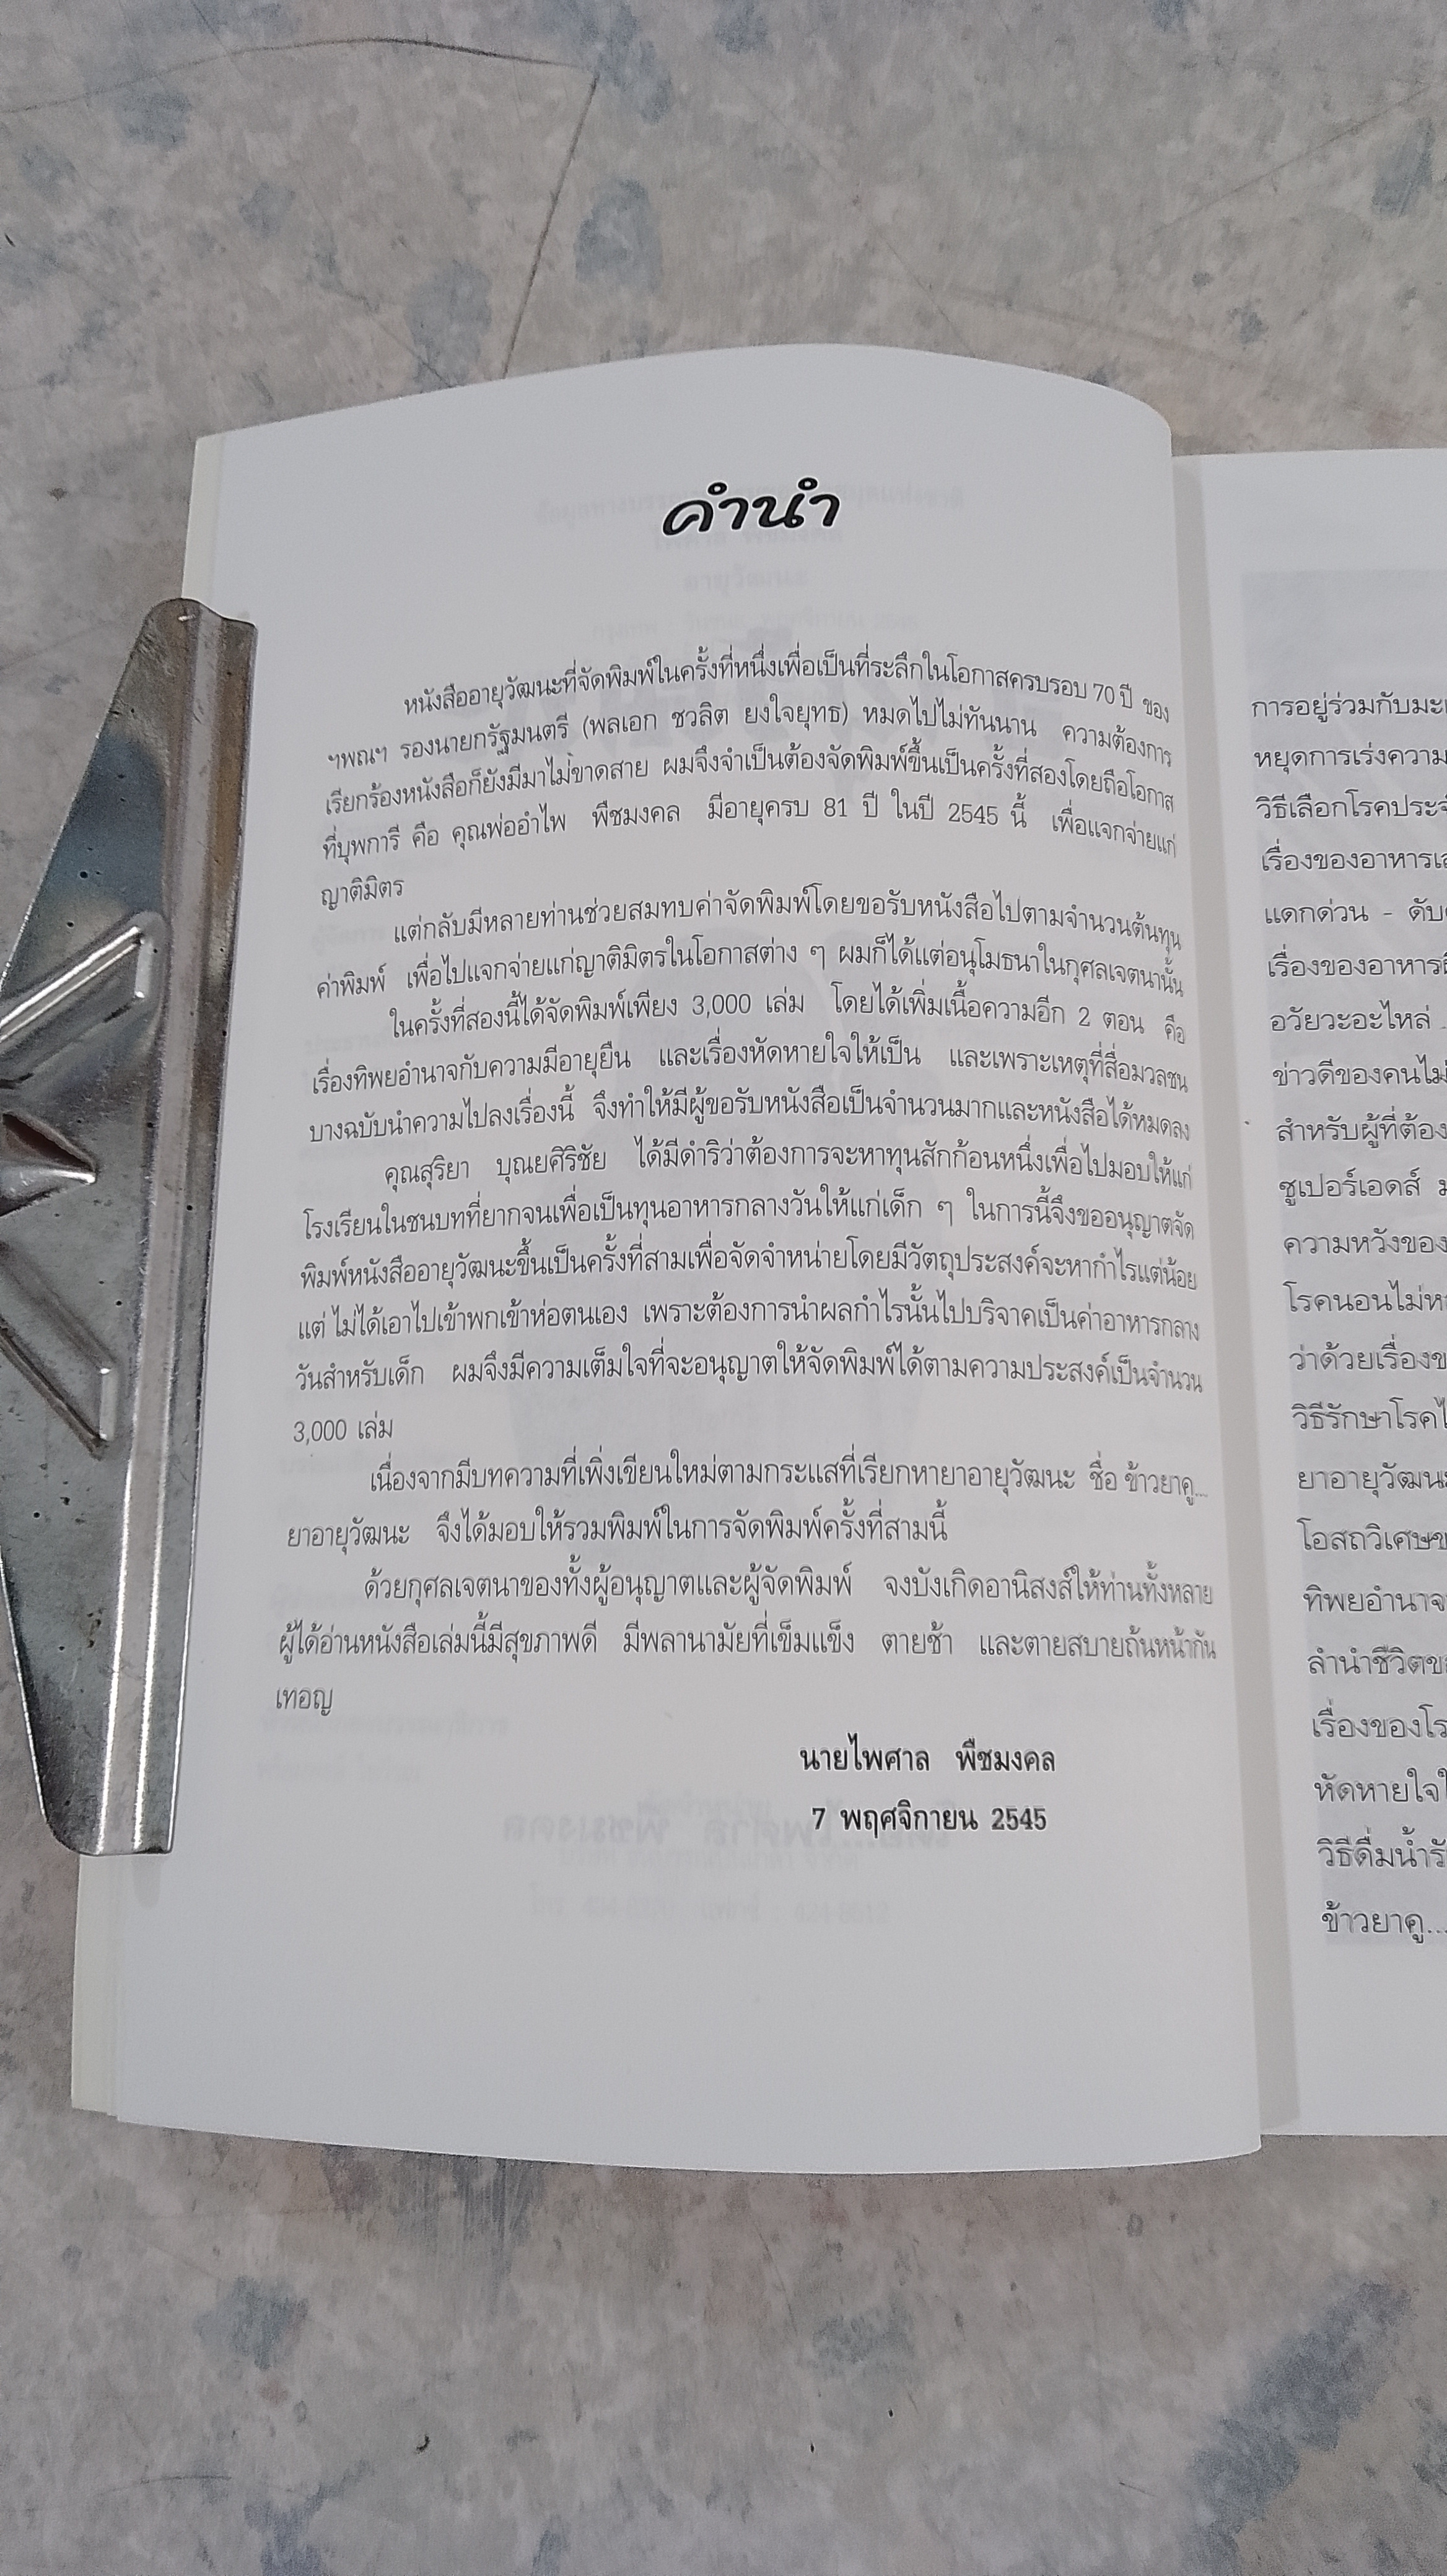 คำนำ
หนังสืออายุวัฒนะที่จัดพิมพ์ในครั้งที่หนึ่งเพื่อเป็นที่ระลึกในโอกาสครบรอบ 70 ปี ของ
ฯพณฯ รองนายกรัฐมนตรี (พลเอก ชวลิต ยงใจยุทธ) หมดไปไม่ทันนาน ความต้องการ
เรียกร้องหนังสือก็ยังมีมาไม่ขาดสาย ผมจึงจำเป็นต้องจัดพิมพ์ขึ้นเป็นครั้งที่สองโดยถือโอกาส
ที่บุพการี คือ คุณพ่ออำไพ พืชมงคล มีอายุครบ 81 ปี ในปี 2545 นี้ เพื่อแจกจ่ายแก่
ญาติมิตร
แต่กลับมีหลายท่านช่วยสมทบค่าจัดพิมพ์โดยขอรับหนังสือไปตามจำนวนต้นทุน
ค่าพิมพ์ เพื่อไปแจกจ่ายแก่ญาติมิตรในโอกาสต่าง ๆ ผมก็ได้แต่อนุโมธนาในกุศลเจตนานั้น
ในครั้งที่สองนี้ได้จัดพิมพ์เพียง 3,000 เล่ม โดยได้เพิ่มเนื้อความอีก 2 ตอน คือ
เรื่องทิพยอำนาจกับความมีอายุยืน และเรื่องหัดหายใจให้เป็น และเพราะเหตุที่สื่อมวลชน
บางฉบับนำความไปลงเรื่องนี้ จึงทำให้มีผู้ขอรับหนังสือเป็นจำนวนมากและหนังสือได้หมดลง
คุณสุริยา บุณยศิริชัย ได้มีดำริว่าต้องการจะหาทุนสักก้อนหนึ่งเพื่อไปมอบให้แก่
โรงเรียนในชนบทที่ยากจนเพื่อเป็นทุนอาหารกลางวันให้แก่เด็ก ๆ ในการนี้จึงขออนุญาตจัด
พิมพ์หนังสืออายุวัฒนะขึ้นเป็นครั้งที่สามเพื่อจัดจำหน่ายโดยมีวัตถุประสงค์จะหากำไรแต่น้อย
แต่ ไม่ได้เอาไปเข้าพกเข้าห่อตนเอง เพราะต้องการนำผลกำไรนั้นไปบริจาคเป็นค่าอาหารกลาง
วันสำหรับเด็ก ผมจึงมีความเต็มใจที่จะอนุญาตให้จัดพิมพ์ได้ตามความประสงค์เป็นจำนวน
3,000 เล่ม
เนื่องจากมีบทความที่เพิ่งเขียนใหม่ตามกระแสที่เรียกหายาอายุวัฒนะ ชื่อ ข้าวยาคู...
ยาอายุวัฒนะ จึงได้มอบให้รวมพิมพ์ในการจัดพิมพ์ครั้งที่สามนี้
ด้วยกุศลเจตนาของทั้งผู้อนุญาตและผู้จัดพิมพ์ จงบังเกิดอานิสงส์ให้ท่านทั้งหลาย
ผู้ได้อ่านหนังสือเล่มนี้มีสุขภาพดี มีพลานามัยที่เข็มแข็ง ตายช้า และตายสบายถ้นหน้ากัน
เทอญ
นายไพศาล พืชมงคล
7 พฤศจิกายน 2545
การอยู่ร่วมกับมะเ
หยุดการเร่งความ
วิธีเลือกโรคประจ
เรื่องของอาหารเส
แดกด่วน - ดับ
เรื่องของอาหาร
อวัยวะอะไหล่ .
ข่าวดีของคนไม่
สำหรับผู้ที่ต้อง
ซูเปอร์เอดส์
ความหวังของ
โรคนอนไม่ห
ว่าด้วยเรื่องข
วิธีรักษาโรคไ
ยาอายุวัฒนะ
โอสถวิเศษข
ทิพยอำนาจ
ลำนำชีวิตข
เรื่องของโร
หัดหายใจใ
วิธีดื่มน้ำรั
ข้าวยาคู...